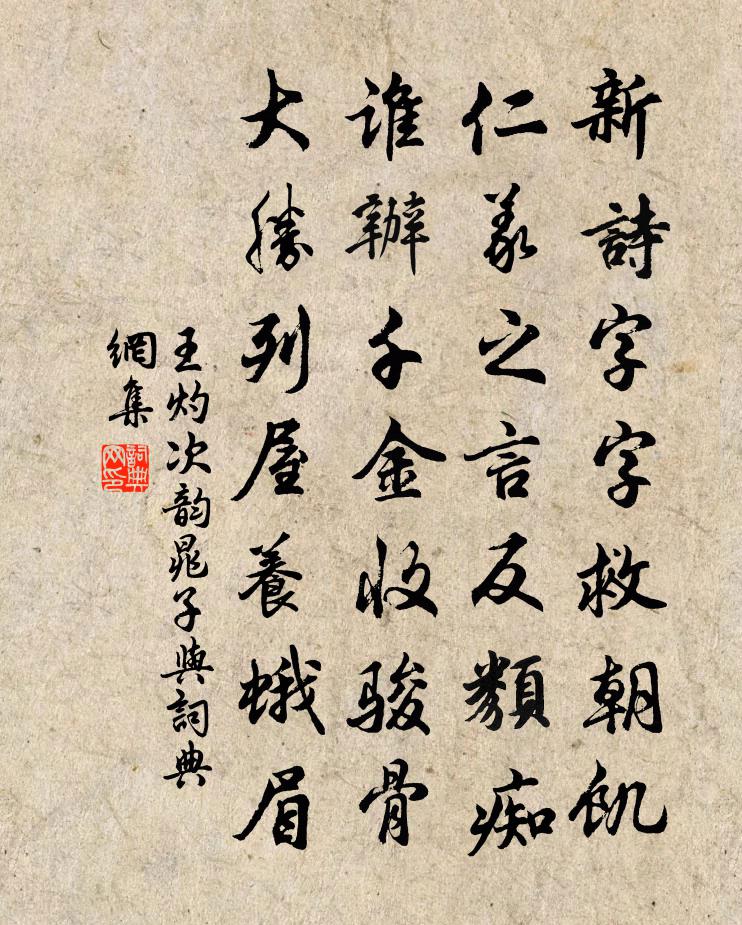 新詩字字救朝飢
仁義之言反類痴
誰辦千金收駿骨
大勝列屋養蛾眉
王灼次韵晁子與詞典
網集
詞典网印